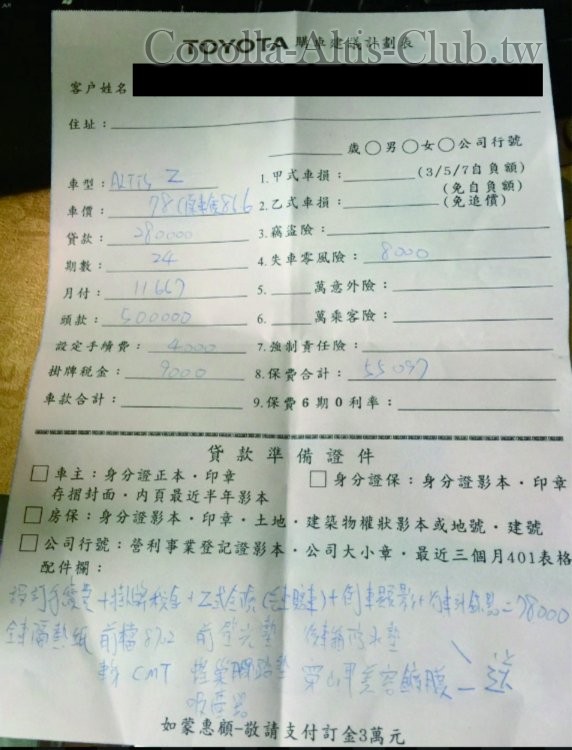 Corolla-Altis-Club.tw
TOYOTA 購車建議計劃表
客戶姓名
住址：
歲○男○女○公司行號
車型：ALTIS Z
1.甲式車損：(3/5/7自負額)
(免自負額)
車價：78
2.乙式車損：(免追償)
貸款：280000
3.竊盜險：
期數：24
4.失車零風險：8000
月付：11667
5.萬意外險：
頭款：500000
6.萬乘客險：
設定手續費：4000
7.強制責任險：
掛牌稅金：9000
8.保費合計：55097
車款合計：
9.保費6期0利率：
貸款準備證件
□車主：身分證正本‧印章
存摺封面‧內頁最近半年影本
□身分證保：身分證影本‧印章
□房保：身分證影本‧印章‧土地‧建築物權狀影本或地號‧建號
□公司行號：營利事業登記證影本‧公司大小章‧最近三個月401表格
配件欄：
設定手續費+掛牌稅金+乙式全險+倒車顯影+=78000
全車隔熱紙 前檔 防水墊
CMT 穿山甲美容鍍膜 送
如蒙惠顧－敬請支付訂金3萬元